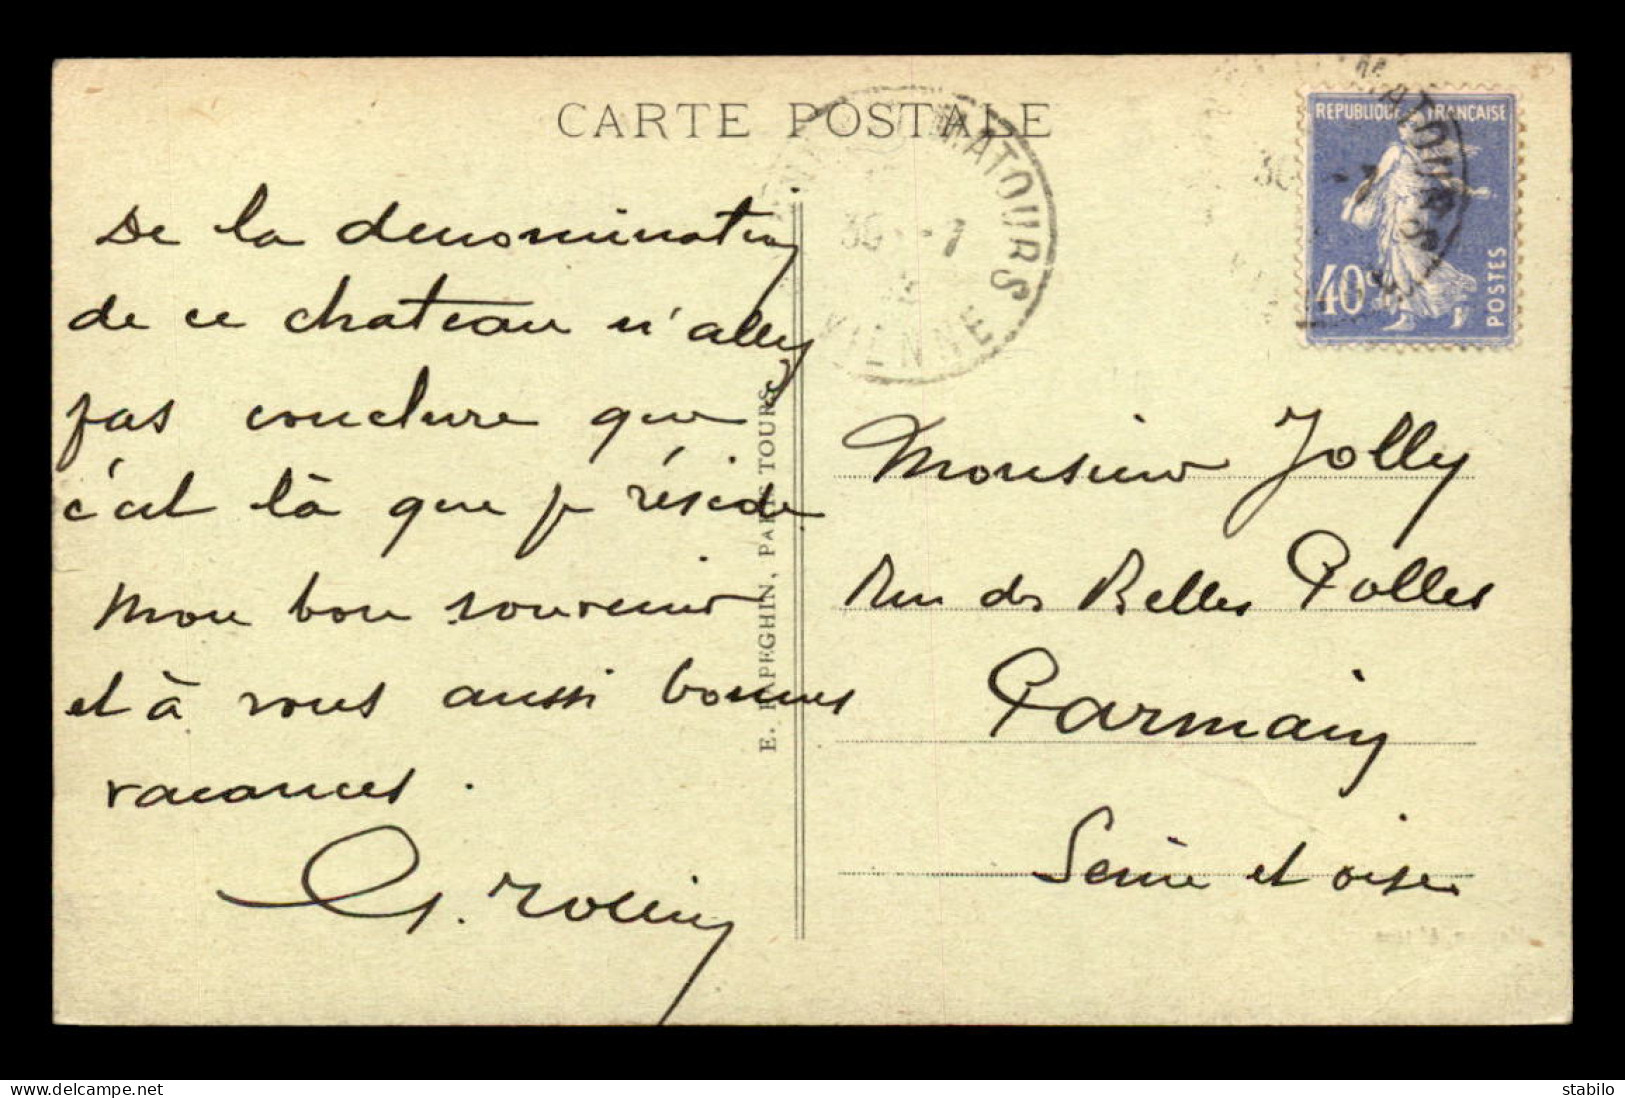 CARTE POSTALE
REPUBLIQUE FRANCAISE
40c
POSTES
MATOURS
30 -7
VIENNE
De la denomination
de ce chateau n'allez
pas conclure que
c'est là que je réside
Mon bon souvenir
et à vous aussi bonnes
vacances.
E. PAPEGHIN, PARIS-TOURS
Monsieur Jolly
Rue des Belles
Parmain
Seine et oise
delcampe.net
stabilo